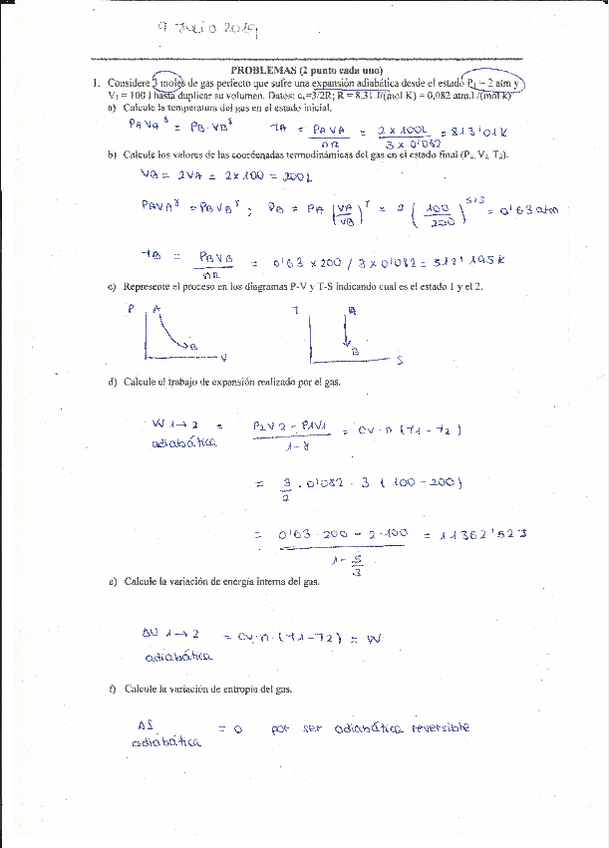 9 Julio 2019
PROBLEMAS (2 punto cada uno)
1. Considere 3 moles de gas perfecto que sufre una expansión adiabática desde el estado P₁ = 2 atm y
V₁ = 100 l hasta duplicar su volumen. Datos: cᵥ=3/2R; R = 8,31 J/(mol K) = 0,082 atm.l /(mol k)
a) Calcule la temperatura del gas en el estado inicial.
PAVA^γ = PB·VB^γ TA = PAVA / nR = 2 x 100L / 3 x 0'082 = 813'01K
b) Calcule los valores de las coordenadas termodinámicas del gas en el estado final (P₂, V₂, T₂).
VB = 2VA = 2 x 100 = 200L
PAVA^γ = PBVB^γ ; PB = PA (VA/VB)^γ = 2 (100/200)^5/3 = 0'63 atm
TB = PBVB / nR = 0'63 x 200 / 3 x 0'082 = 512'195K
c) Represente el proceso en los diagramas P-V y T-S indicando cual es el estado 1 y el 2.
P A T A
B B
V S
d) Calcule el trabajo de expansión realizado por el gas.
W 1→2 = P2V2 - P1V1 / 1-γ = CV·n (T1 - T2)
adiabática
= 3/2 · 0'082 · 3 (100 - 200)
= 0'63 · 200 - 2·100 / 1 - 5/3 = 11362'523
e) Calcule la variación de energía interna del gas.
ΔU 1→2 = CV·n·(T1-T2) = W
adiabática
f) Calcule la variación de entropía del gas.
ΔS = 0 por ser adiabática reversible
adiabática